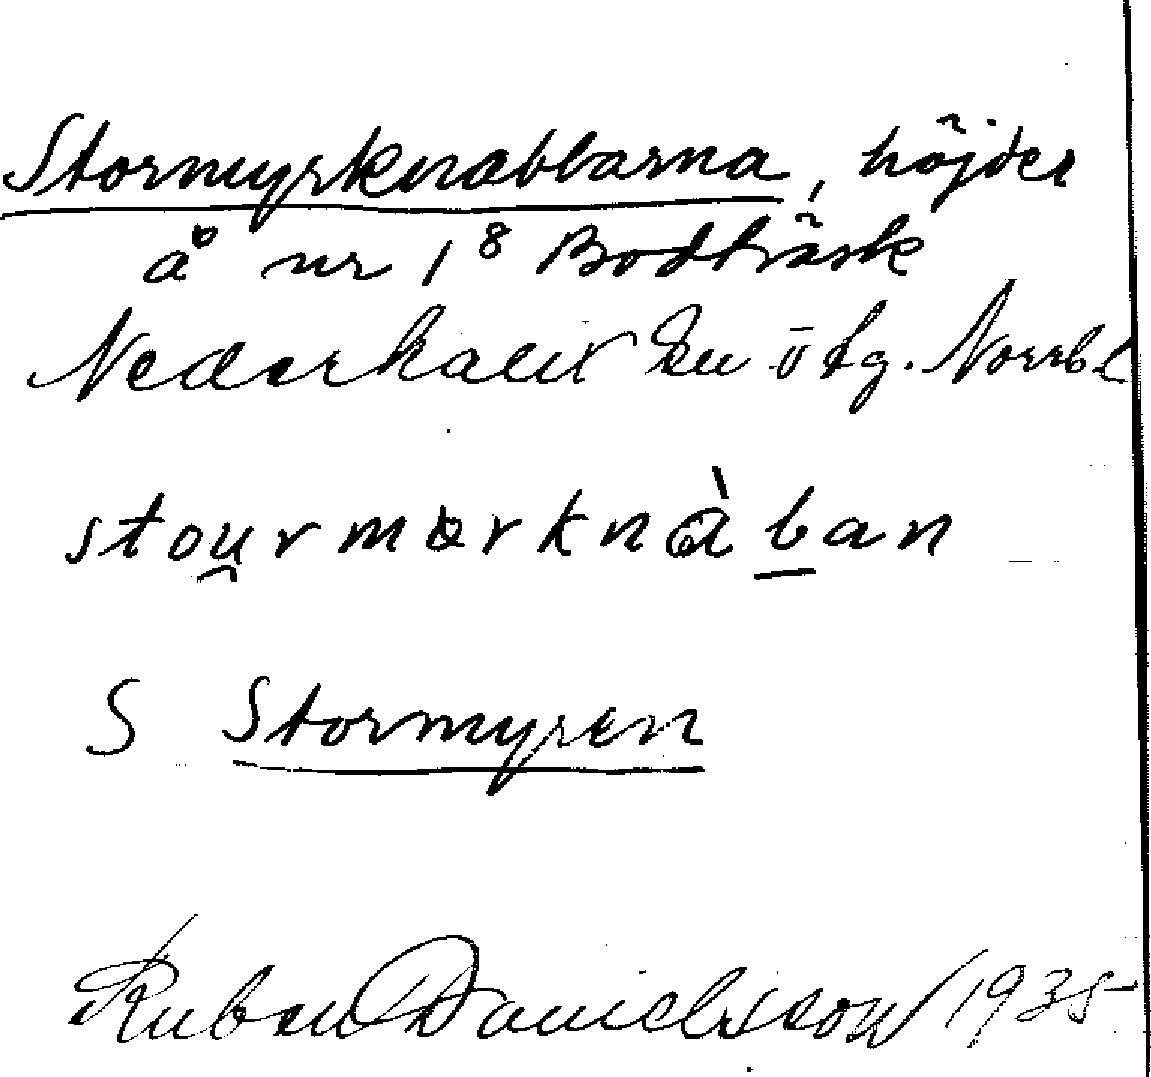 Stormyrknabbarna, höjder
å nr 1⁸ Bodträsk
Nederkalix sn ö tg. Norrb l
stou̯rmørknàb̲an
S Stormyren
Ruben Danielsson 1935